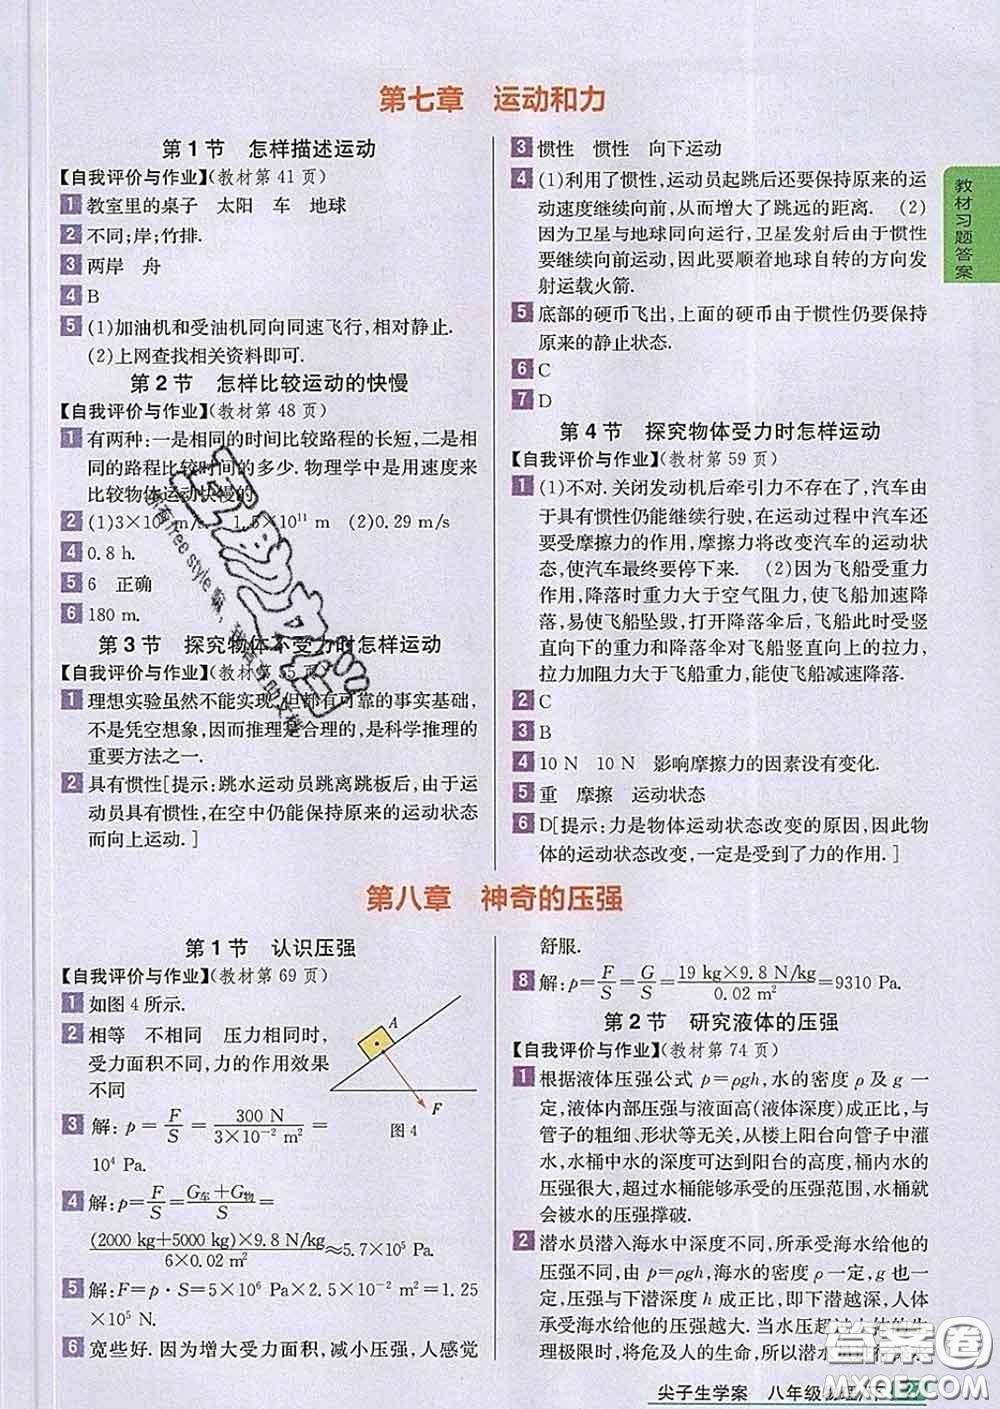 第七章 运动和力
第1节 怎样描述运动
【自我评价与作业】(教材第41页)
1 教室里的桌子 太阳 车 地球
2 不同;岸;竹排.
3 两岸 舟
4 B
5 (1)加油机和受油机同向同速飞行,相对静止.
(2)上网查找相关资料即可.
第2节 怎样比较运动的快慢
【自我评价与作业】(教材第48页)
1 有两种:一是相同的时间比较路程的长短,二是相
同的路程比较时间的多少.物理学中是用速度来
比较物体运动快慢的
2 (1)3×10 m/s 1.5×10¹¹ m (2)0.29 m/s
4 0.8 h.
5 6 正确
6 180 m.
第3节 探究物体不受力时怎样运动
【自我评价与作业】(教材第55页)
1 理想实验虽然不能实现,但都有可靠的事实基础,
不是凭空想象,因而推理是合理的,是科学推理的
重要方法之一.
2 具有惯性[提示:跳水运动员跳离跳板后,由于运
动员具有惯性,在空中仍能保持原来的运动状态
而向上运动.]
3 惯性 惯性 向下运动
4 (1)利用了惯性,运动员起跳后还要保持原来的运
动速度继续向前,从而增大了跳远的距离. (2)
因为卫星与地球同向运行,卫星发射后由于惯性
要继续向前运动,因此要顺着地球自转的方向发
射运载火箭.
5 底部的硬币飞出,上面的硬币由于惯性仍要保持
原来的静止状态.
6 C
7 D
第4节 探究物体受力时怎样运动
【自我评价与作业】(教材第59页)
1 (1)不对.关闭发动机后牵引力不存在了,汽车由
于具有惯性仍能继续行驶,在运动过程中汽车还
要受摩擦力的作用,摩擦力将改变汽车的运动状
态,使汽车最终要停下来. (2)因为飞船受重力
作用,降落时重力大于空气阻力,使飞船加速降
落,易使飞船坠毁,打开降落伞后,飞船此时受竖
直向下的重力和降落伞对飞船竖直向上的拉力,
拉力加阻力大于飞船重力,能使飞船减速降落.
2 C
3 B
4 10 N 10 N 影响摩擦力的因素没有变化.
5 重 摩擦 运动状态
6 D[提示:力是物体运动状态改变的原因,因此物
体的运动状态改变,一定是受到了力的作用.]
教材习题答案
第八章 神奇的压强
第1节 认识压强
【自我评价与作业】(教材第69页)
1 如图4所示.
2 相等 不相同 压力相同时,
受力面积不同,力的作用效果
不同
A
F
图4
3 解:p=F/S=300 N/(3×10⁻² m²)=
10⁴ Pa.
4 解:p=F/S=(G车+G物)/S=
(2000 kg+5000 kg)×9.8 N/kg/(6×0.02 m²)≈5.7×10⁵ Pa.
5 解:F=p·S=5×10⁶ Pa×2.5×10⁻² m²=1.25
×10⁵ N.
6 宽些好.因为增大受力面积,减小压强,人感觉
舒服.
8 解:p=F/S=G/S=19 kg×9.8 N/kg/(0.02 m²)=9310 Pa.
第2节 研究液体的压强
【自我评价与作业】(教材第74页)
1 根据液体压强公式 p=ρgh,水的密度 ρ 及 g 一
定,液体内部压强与液面高(液体深度)成正比,与
管子的粗细、形状等无关,从楼上阳台向管子中灌
水,水桶中水的深度可达到阳台的高度,桶内水的
压强很大,超过水桶能够承受的压强范围,水桶就
会被水的压强撑破.
2 潜水员潜入海水中深度不同,所承受海水给他的
压强不同,由 p=ρgh,海水的密度 ρ 一定,g 一
定,压强与下潜深度 h 成正比,即下潜越深,人体
承受海水给他的压强越大.当深度超过人体的生
理极限时,将危及人的生命,所以潜水
尖子生学案 八年级物理(下) 27
答案圈
MXQE.COM